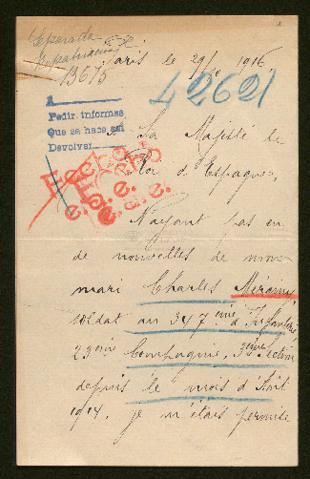 Paris le 29/ 1916
13675
42621
Pedir informes
Que se hace así
Devolver
Sa Majesté le
Roi d'Espagne,
Fecho
e. e. e.
N'ayant pas eu
de nouvelles de mon
mari Charles
soldat au 347ème d'Infanterie
23ème Compagnie, 3ème Section
depuis le mois d'Août
1914. je m'étais permise